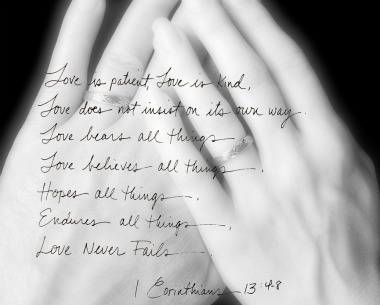 Love is patient, Love is kind,
Love does not insist on its own way.
Love bears all things
Love believes all things.
Hopes all things.
Endures all things.
Love Never Fails.
1 Corinthians 13:4-8